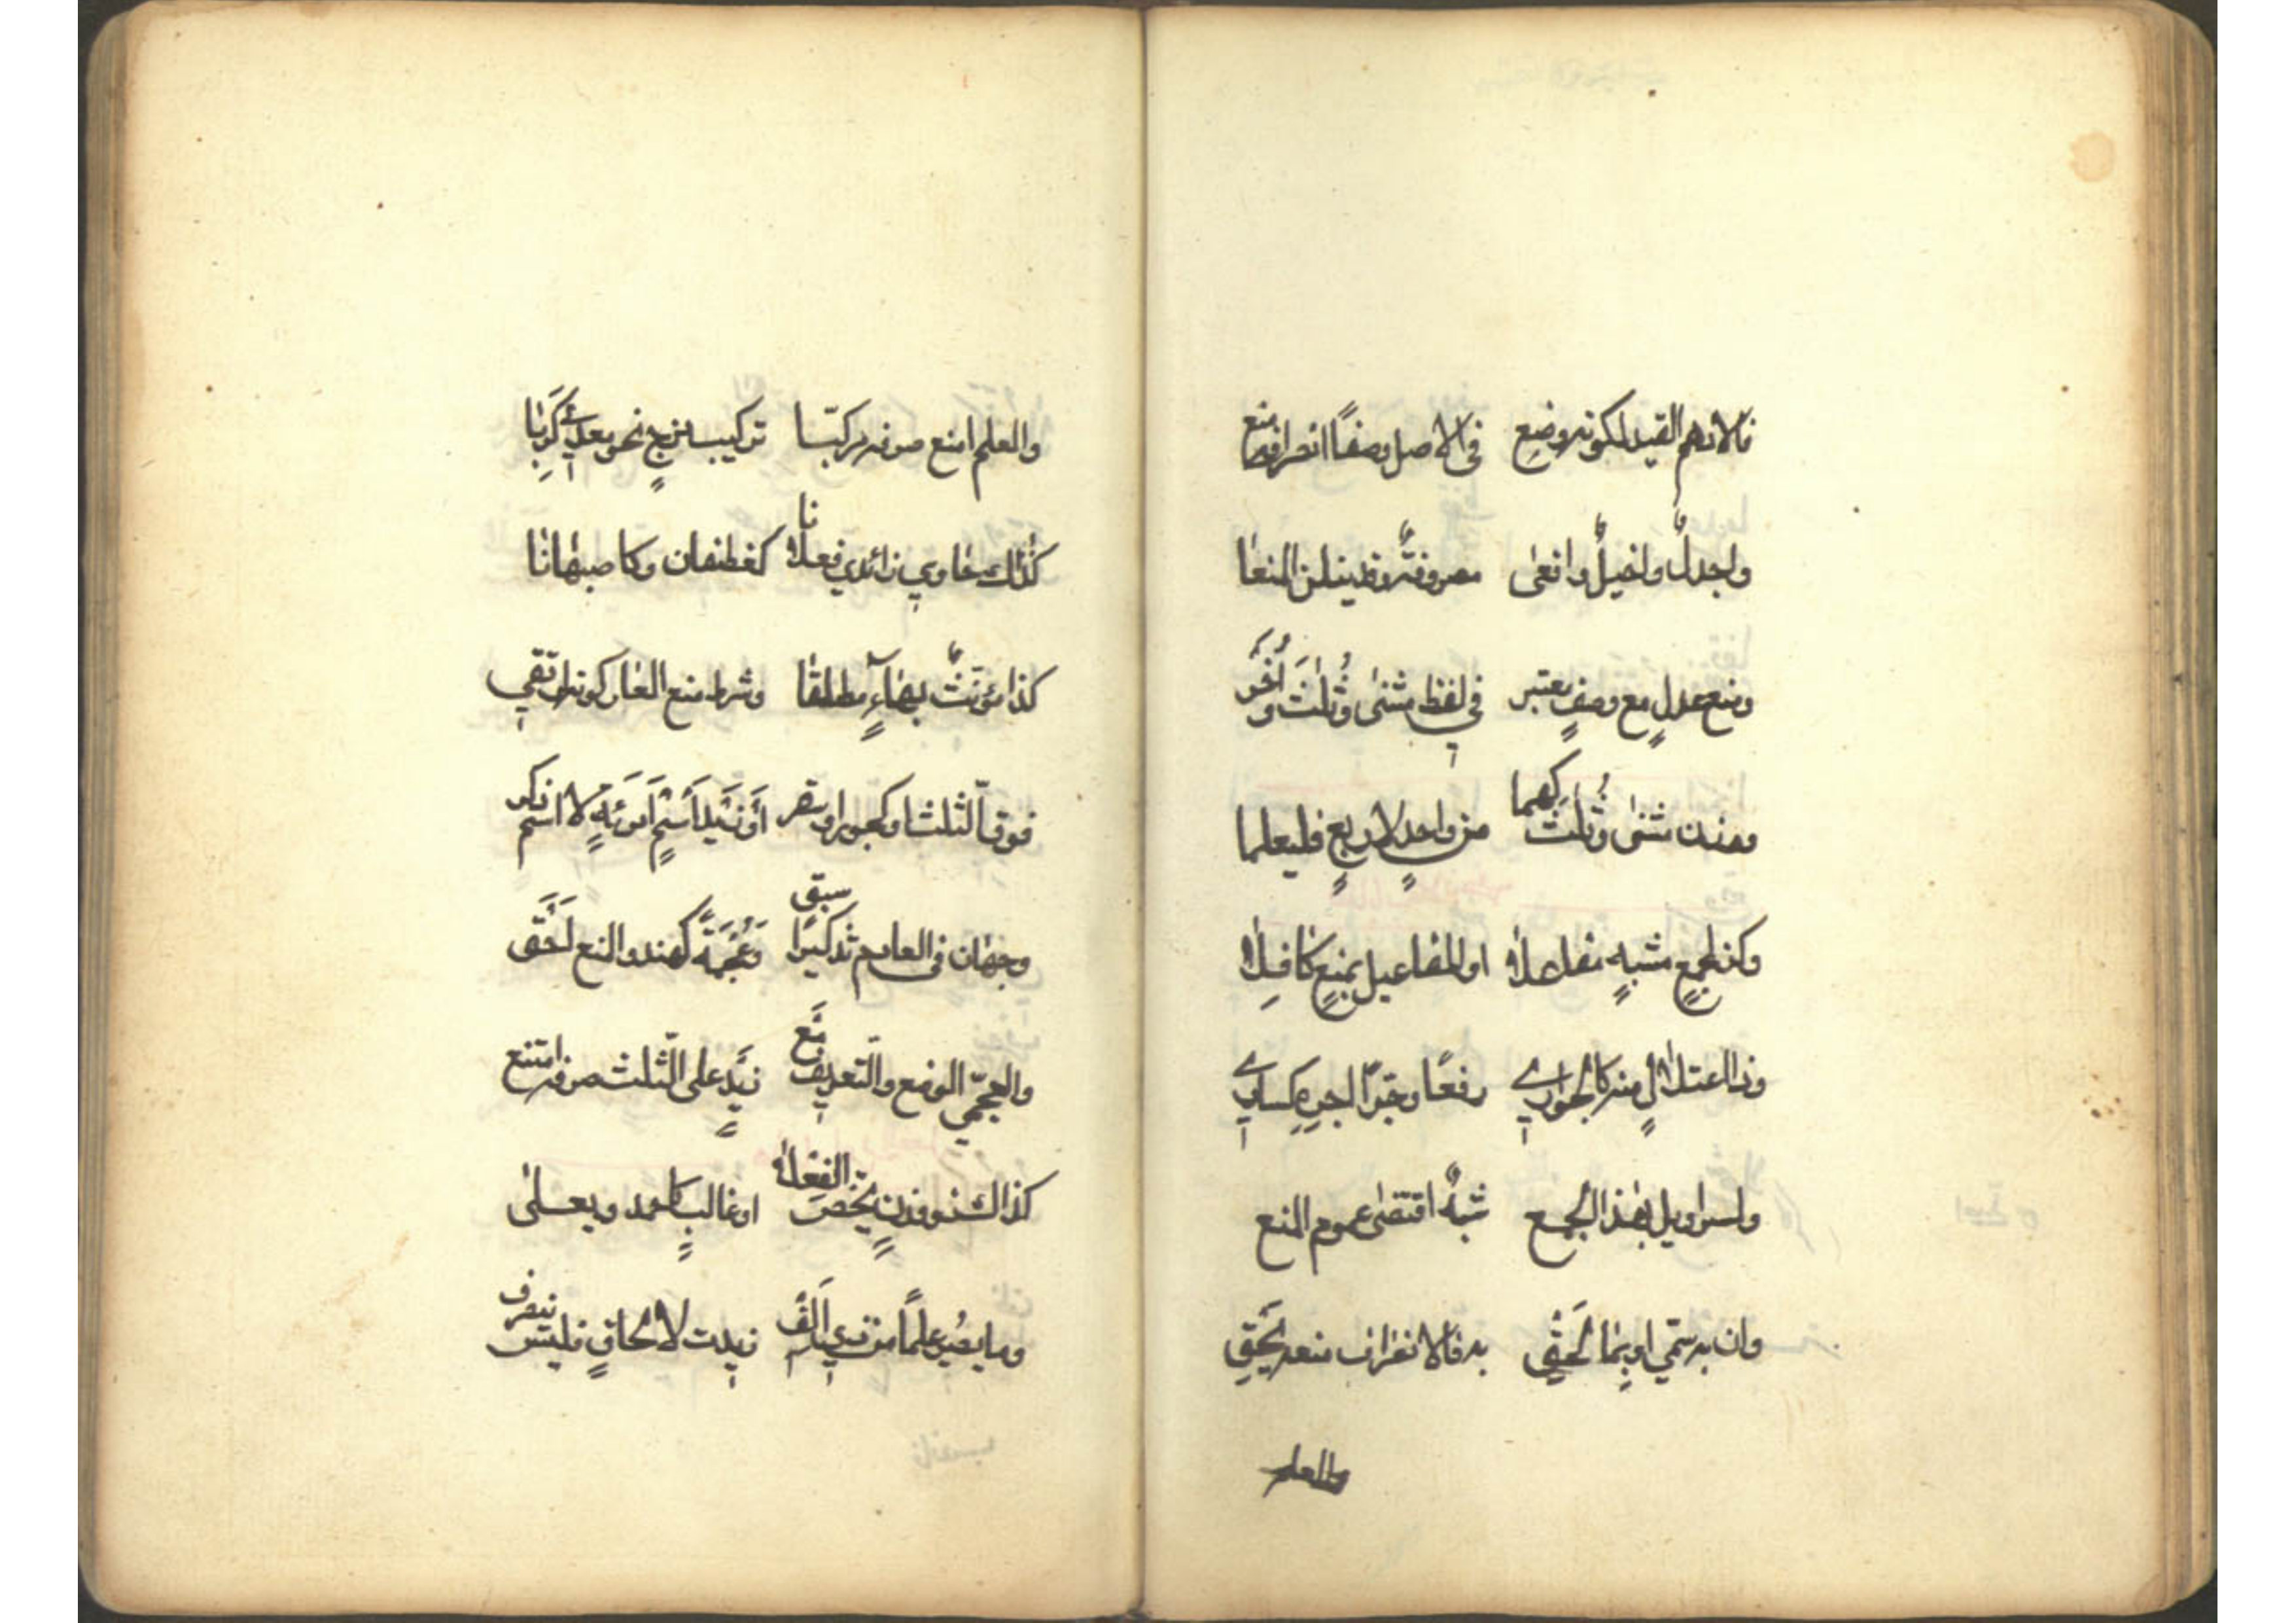 فالادهم القيد لكونه وضع في الاصل وصفًا انصرافه منع
واجدلٌ واخيلٌ وافعى مصروفةٌ وقد ينلن المنعا
ومنع عدلٍ مع وصفٍ يعتبر في لفظ مثنى وثُلٰثَ وأُخَر
ووزن مثنى وثُلٰثَ كهما من واحدٍ لاربعٍ فليعلما
وكن لجمعٍ مشبهٍ مفاعلا او المفاعيل بمنعٍ كافِلا
وذا اعتلالٍ منه كالجواري رفعًا وجرًّا اجرِهِ كساري
ولسراويل بهذا الجمع شبهٌ اقتضى عموم المنع
وان به سمّي او بما لَحِق به فالانصراف منعه يَحِق
والعلم
والعلم امنع صرفه مركبّا تركيب مزجٍ نحو معدي كَرِبا
كذاك حاوي زائدي فعلانا كغطفان وكاصبهانا
كذا مؤنثٌ بهاءٍ مطلقا وشرط منع العار كونه ارتقى
فوق الثلث او كجور او سقر أَوْ زَيْدٍ اَسْمَ اَمرَئةٍ لا اسم ذكر
وجهان في العادم تذكيرًا سبق وَعُجْمَةً كهند والمنع اَحَقّ
والعجميّ الوضع والتّعريف مَع زيدٍ على الثّلث صرفه امتنع
كذاك ذو وزنٍ يخُصّ الفعلا او غالبٍ كاحمد ويعلى
وما يصُير علمًا من ذي اَلفٍ زيدت لالحاقٍ فليس ينصرف